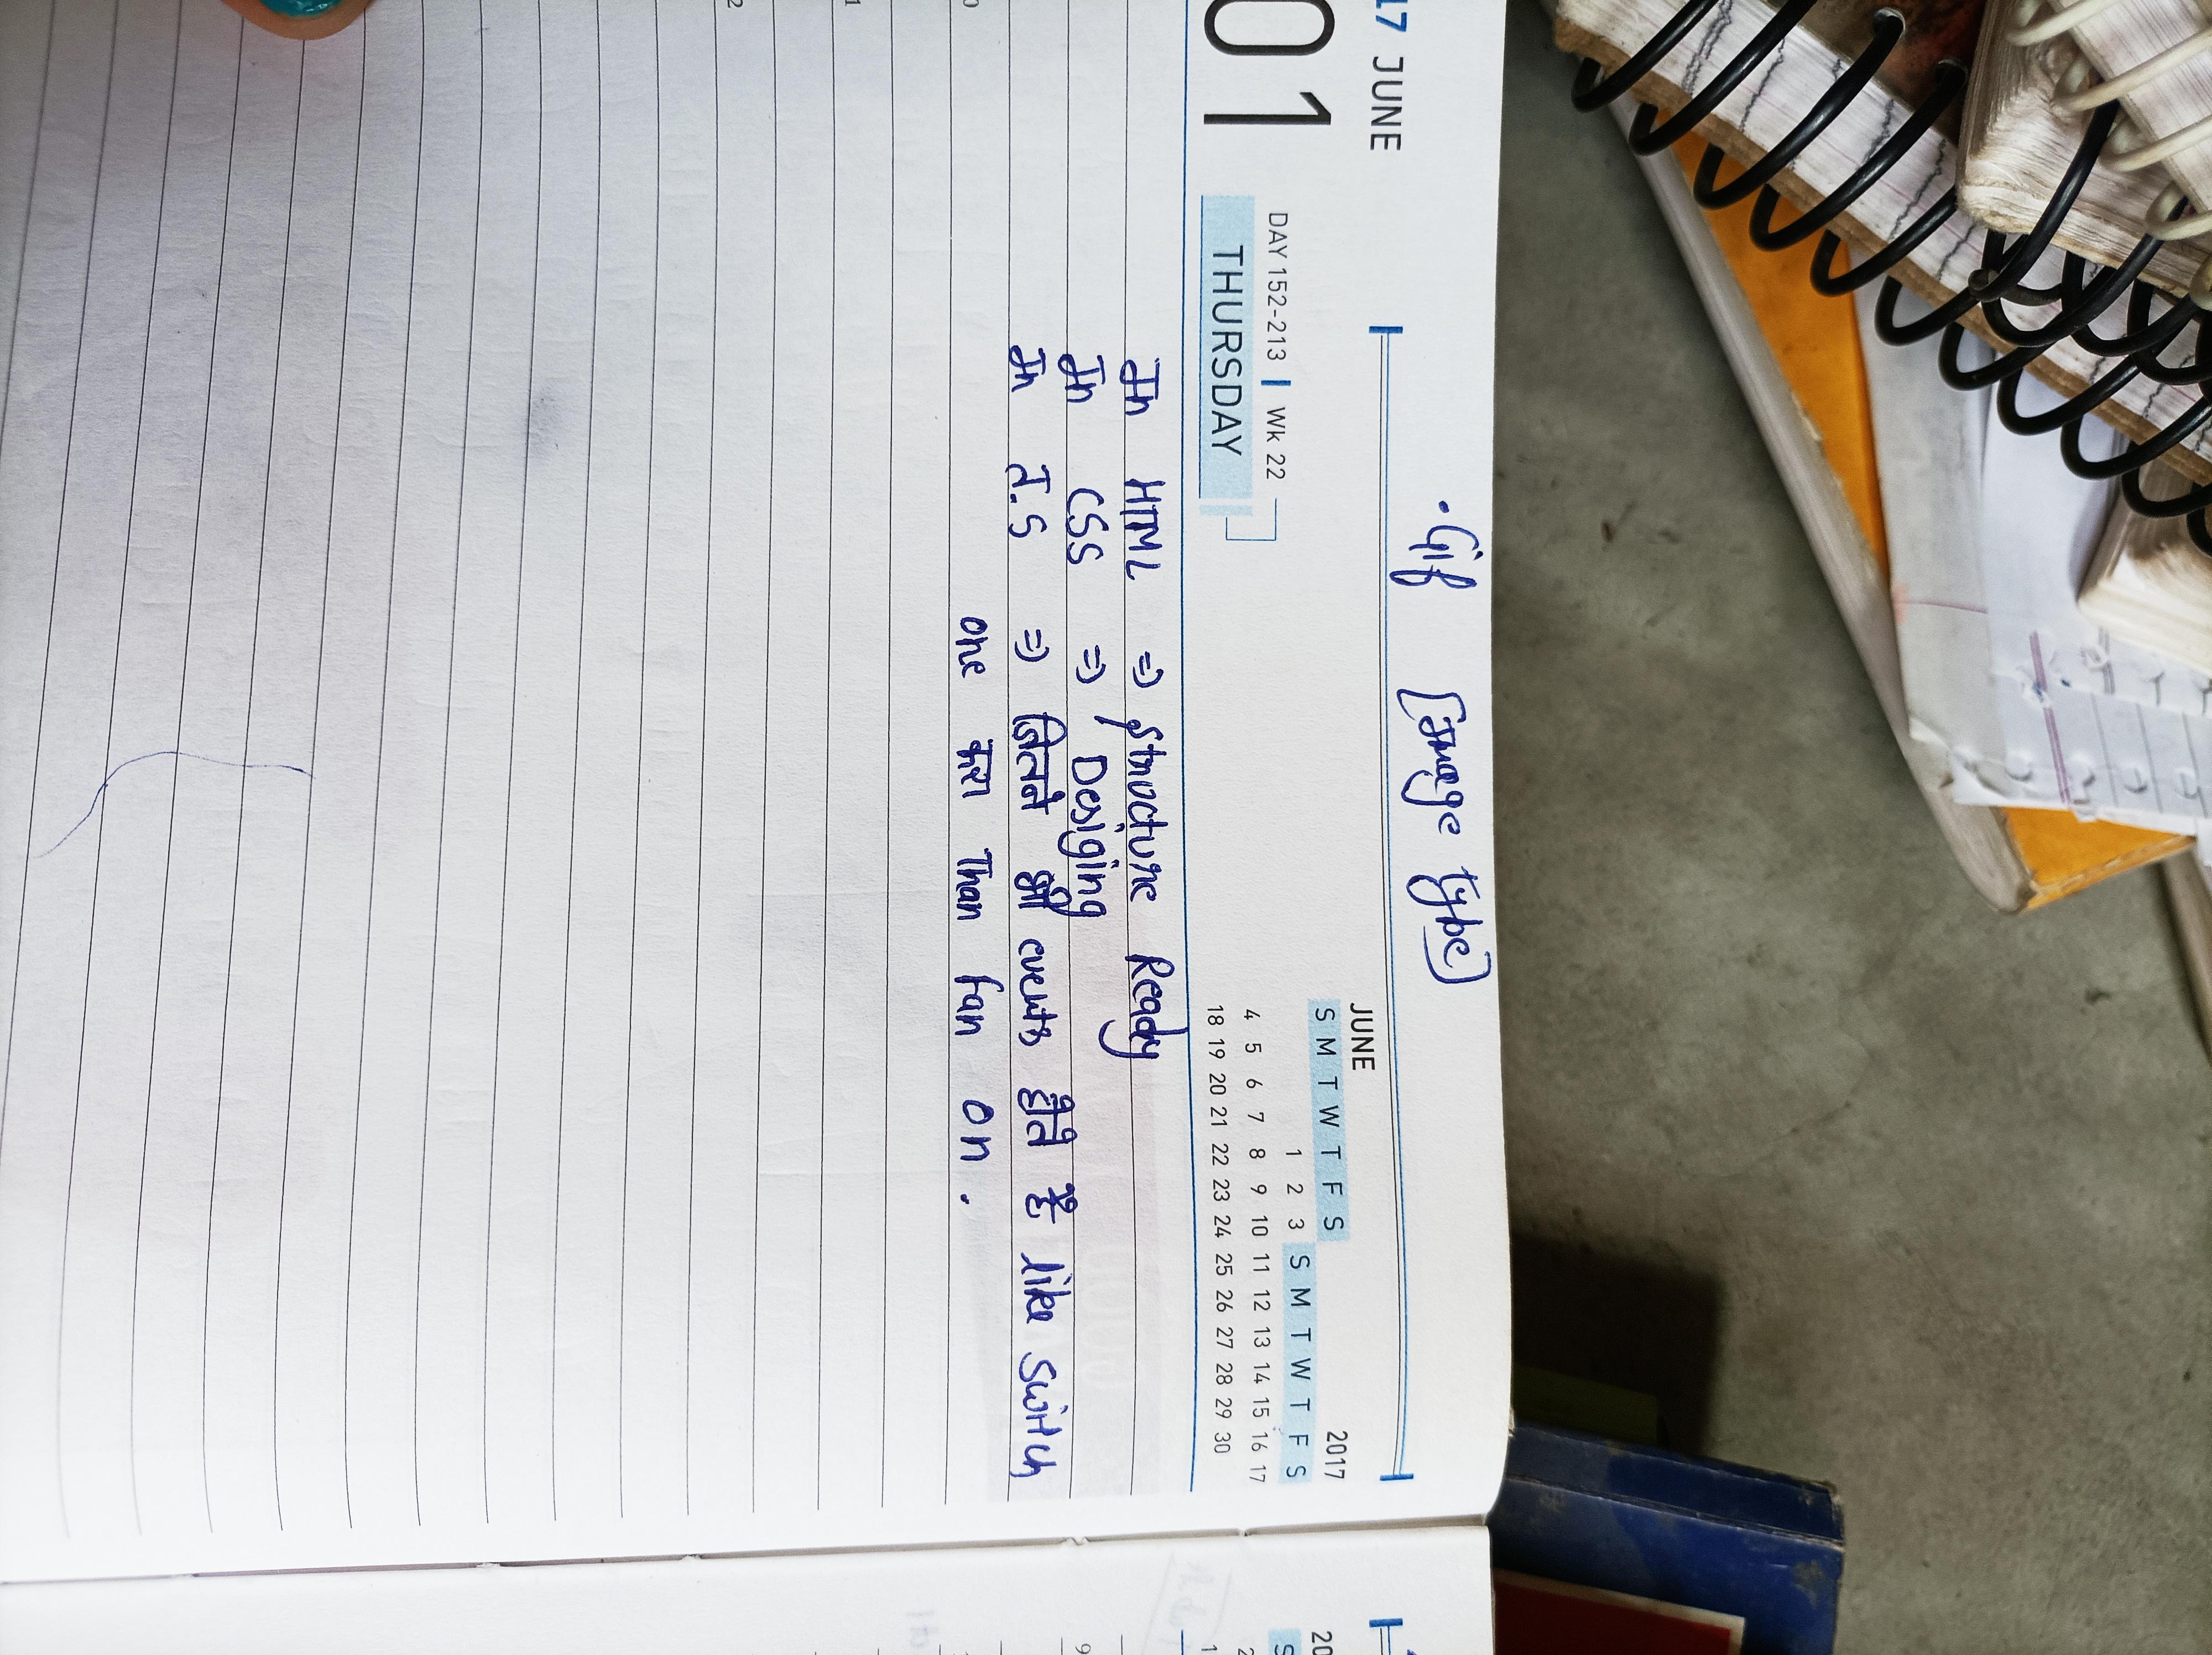 17 JUNE
.Gif [Image type]
01
DAY 152-213 | Wk 22
THURSDAY
JUNE 2017
S M T W T F S S M T W T F S
1 2 3
4 5 6 7 8 9 10 11 12 13 14 15 16 17
18 19 20 21 22 23 24 25 26 27 28 29 30
In HTML => Structure Ready
In CSS => Desiging
In J.S => जितने भी events होते हैं like switch
one करा Than fan on.
20
9